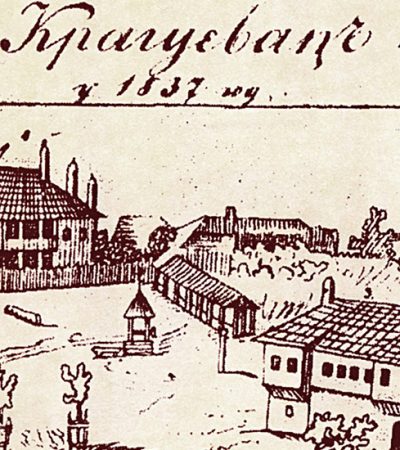 Крагуєвацъ
у 1837 год.